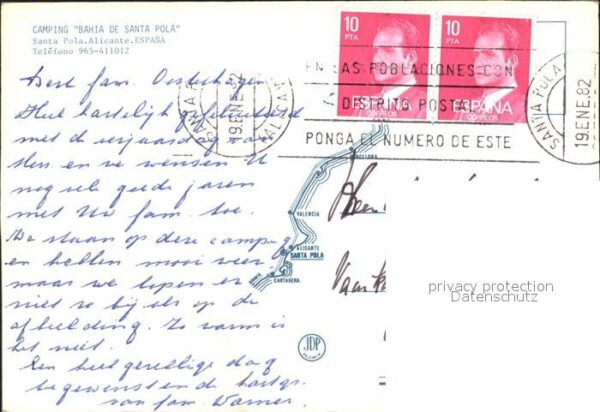 CAMPING "BAHIA DE SANTA POLA"
Santa Pola.Alicante.ESPAÑA
Teléfono 965-411012
Beste fam. Oosterhagen
Heel hartelijk gefeliciteerd
met de verjaardag van
en we wensen U
nog vele goede jaren
met Uw fam. toe.
We staan op deze camping
en hebben mooi weer
maar we lopen er
niet zo bij als op de
afbeelding. Zo warm is
het niet.
Een heel gezellige dag
toegewenst en de hartgr.
van fam. Warner
10
PTA
10
PTA
ESPAÑA
CORREOS
ESPAÑA
CORREOS
EN LAS POBLACIONES CON
DISTRITO POSTAL
PONGA EL NUMERO DE ESTE
SANTA POLA
19.ENE.82
ALICANTE
SANTA POLA
19.ENE.82
BARCELONA
VALENCIA
ALICANTE
SANTA POLA
CARTAGENA
JDP
VALENCIA
privacy protection
Datenschutz